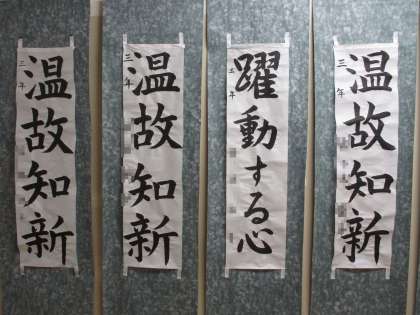 温故知新
三年
温故知新
三年
躍動する心
年
温故知新
三年